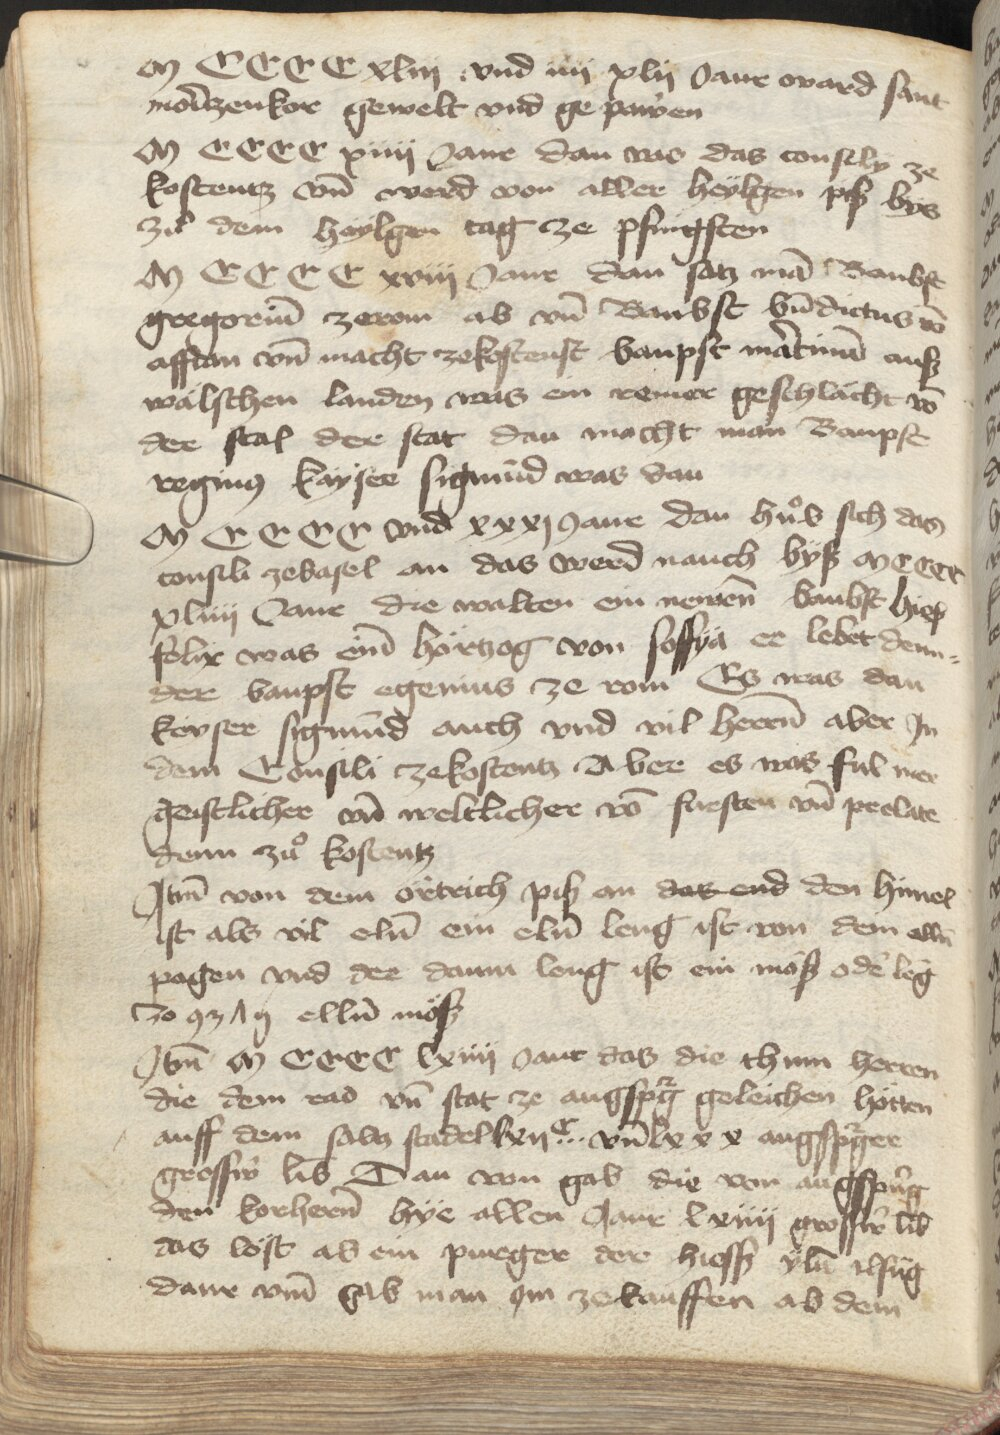 M CCCC xliij vnd iiij xlij Jaur ovard sant
moritzenkor gewelt vnd ge pawen
M CCCC xiiij Jaur dau was das consily ze
kostentz vn̄ werd von aller heÿlgen piß bÿs
zů dem heÿlgen tag ze pfingsten
M CCCC xviij Jaur dau satz mā Baubst
gregoriū zerom ab vn̄ Baubst bn̄dictus vō
affian vn̄ macht zekostenst baupst mārtinū auß
wälschen landen was ein remer geschlächt vō
der stal der stat dau macht man Baupst
reginus kaÿser sigmūnd was dau
M CCCC vnd xxxj Jaur dau hůb sich das
consili zebasel an das werd nauch bÿß MCCCC
xliiij Jaur die walten ein newen̄ baubst hieß
felix was ein̄ hörtzog von soffÿa er lebet denn=
der baupst egenius ze rom Es was dau
keyser sigmūnd auch vnd vil herrn̄ aber Jn
dem Consili zekostentz Aber es was ful mer
geistlicher vn̄ weltlicher vō fursten vn̄ prelate
denn zůͦ kostentz
Jtm̄ von dem örtrich piß an das end den himel
ist als vil eln̄ ein eln̄ leng ist von dem elln̄
pogen vnd der daum leng ist ein möß odē lēg
elln̄ möß
Jtm̄ M CCCC lxiiij Jaur das die thum herren
die dem rad vn̄ stat ze augspg̈ geleichen hötten
auff dem saltz stadel lxij C vn̄ lxxx augspg̈er
grossw̄ lib Dau von gab die von augspurg
den korhern̄ hÿe allen Jaur lxiiij grossw̄ lib
das löst ab ein purger der hieß ÿln̄ ilsūg
daur vm̄ gab man im zekauffen ab dem